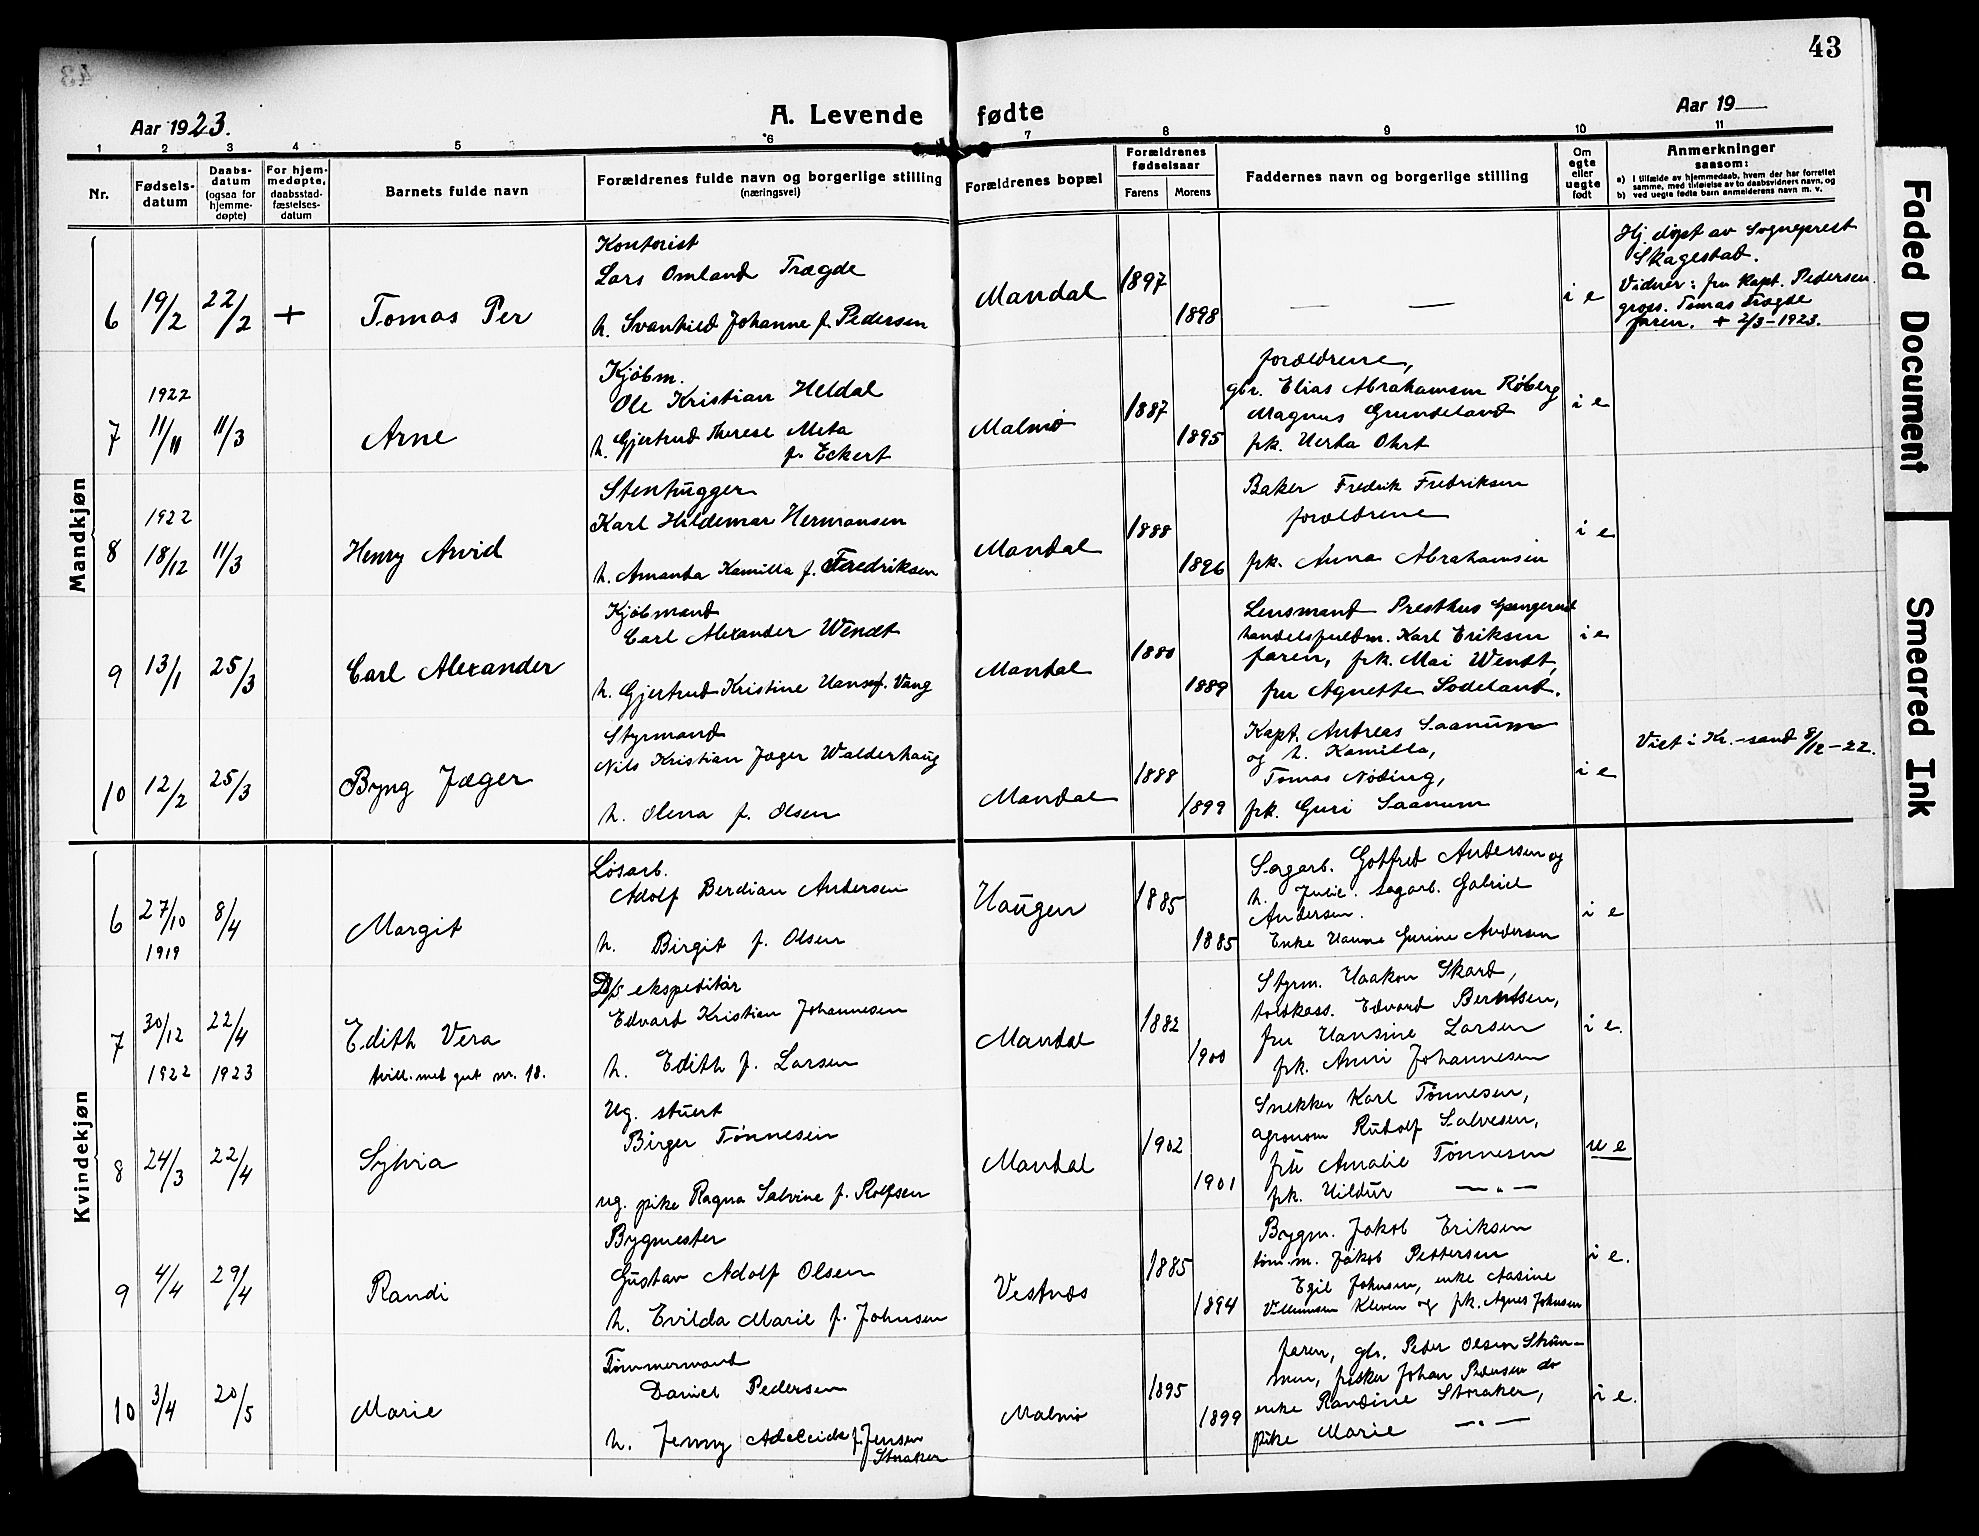 43
Aar 1923.
A. Levende fødte
Aar 19
1 2 3 4 5 6 7 8 9 10 11
Nr.
Fødsels-
datum
Daabs-
datum
(ogsaa for
hjemme-
døpte)
For hjem-
medøpte,
daabsstad-
fæstelses-
datum
Barnets fulde navn
Forældrenes fulde navn og borgerlige stilling
(næringsvei)
Forældrenes bopæl
Forældrenes
fødselsaar
Farens Morens
Faddernes navn og borgerlige stilling
Om
egte
eller
uegte
født
Anmerkninger
saasom:
a) I tilfælde av hjemmedaab, hvem der har forrettet
samme, med tilføielse av to daabsvidners navn, og
b) ved uegte fødte barn anmelderens navn m. v.
Mandkjøn
6 19/2 22/2 + Tomas Per
Kontorist
Lars Omland Trægde
h. Svanhild Johanne f. Pedersen
Mandal 1897 1898
— —
i e
Hj. døpt av Sogneprest
Skagestad.
Vidner: fru Kapt. Pedersen
gros. Tomas Trægde
faren. + 2/3-1923.
7 1922
11/11 11/3 Arne
Kjøbm.
Ole Kristian Heldal
h. Gjertrud Therese Meta
f. Eckert
Malmø 1887 1895
forældrene,
gbr. Elias Abrahamsen Røberg
Magnus Grundeland
frk. Herta Ohrt
i e
8 1922
18/12 11/3 Henry Arvid
Stenhugger
Karl Hildemar Hermansen
h. Amanda Kamilla f. Fredriksen
Mandal 1888 1896
Baker Fredrik Fredriksen
forældrene
frk. Anna Abrahamsen
i e
9 13/1 25/3 Carl Alexander
Kjøbmand
Carl Alexander Wendt
h. Gjertrud Kristine Hansf. Vang
Mandal 1880 1889
Lensmand Presthus
handelsfuldm. Karl Eriksen
faren, frk. Mai Wendt,
fru Agnette Sodeland.
i e
10 12/2 25/3 Byng Jæger
Styrmand
Nils Kristian Jæger Walderhaug
h. Olena f. Olsen
Mandal 1888 1899
Kapt. Andreas Saanum
og h. Kamilla,
Tomas Nøding,
frk. Guri Saanum
i e
Viet i Kr.-sand 8/12-22.
Kvindekjøn
6 27/10 8/4 Margit
1919
Løsarb.
Adolf Berdian Andersen
h. Birgit f. Olsen
Haugen 1885 1885
Sagarb. Gotfred Andersen og
h. Julie. sagarb. Gabriel
Andersen.
Enke Hanne Gurine Andersen
i e
7 30/12 22/4 Edith Vera
1922 1923 tvill. med gut nr. 18.
D/S ekspeditør
Edvard Kristian Johannesen
h. Edith f. Larsen
Mandal 1882 1900
Styrm. Haakon Skard,
toldkass. Edvard Berntsen,
fru Hansine Larsen
frk. Anni Johannesen
i e.
8 24/3 22/4 Sylvia
Ug. stuert
Birger Tønnesen
ug. pike Ragna Salvine f. Rolfsen
Mandal 1902 1901
Snekker Karl Tønnesen,
agronom Rudolf Salvesen,
fru Amalie Tønnesen
frk. Hildur —"—
u e
9 4/4 29/4 Randi
Bygmester
Gustav Adolf Olsen
h. Evilda Marie f. Johnsen
Vestnæs 1885 1894
Bygm. Jakob Eriksen
tøm.m. Jakob Pettersen
Egil Johnsen, enke Aasine
Villumsen Kleven og frk. Agnes Johnsen
i e.
10 3/4 20/5 Marie
Tømmermand
Daniel Pedersen
h. Jenny Adeleide f. Jensen
Storaker
Malmø 1895 1899
faren, gbr. Peder Olsen Strøm-
men, fisker Johan Pedersen do
enke Randine Storaker,
pike Marie —"—
i e.
Faded Document
Smeared Ink